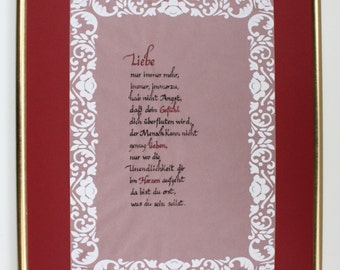 Liebe
nur immer mehr,
immer, immerzu,
hab nicht Angst,
daß dein Gefühl
dich überfluten wird,
der Mensch kann nicht
genug lieben,
nur wo die
Unendlichkeit dir
im Herzen aufgeht
da bist du erst,
was du sein sollst.